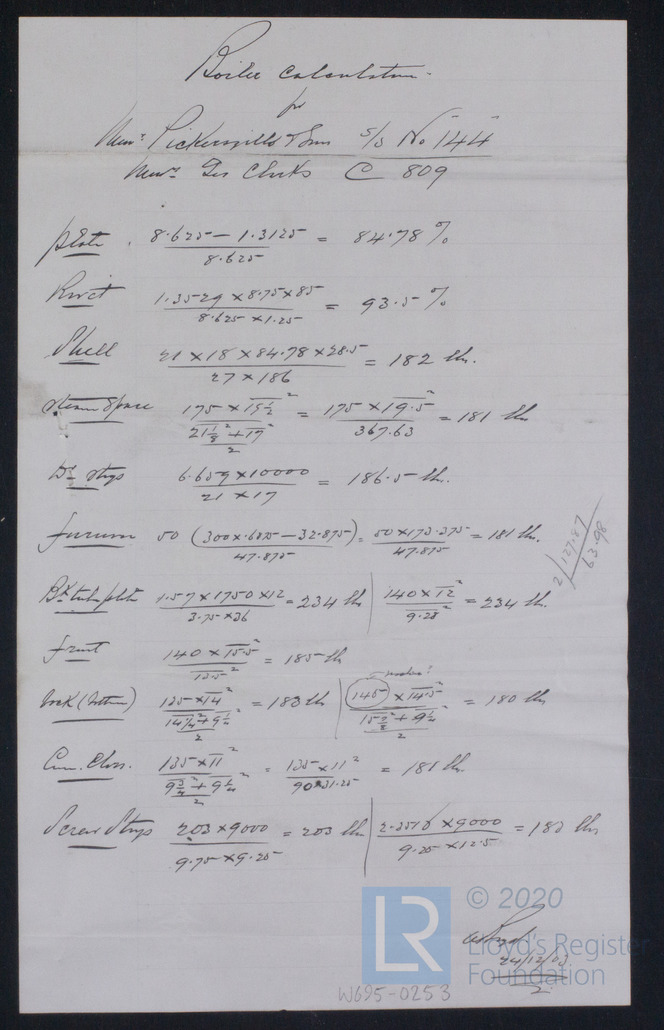 Boiler Calculation
for
Messrs Pickersgill & Sons S/S No "144"
Messrs Geo Clarks C 809
plate . 8.625 — 1.3125 / 8.625 = 84.78 %
Rivet 1.3529 × 8.75 × 85 / 8.625 × 1.25 = 93.5 %
Shell 21 × 18 × 84.78 × 28.5 / 27 × 186 = 182 lbs.
Steam Space 175 × 19½² / 21⅛² + 17² / 2 = 175 × 19.5² / 367.63 = 181 lbs
Do stays 6.659 × 10000 / 21 × 17 = 186.5 lbs.
furnace 50 (300 × .6875 — 32.875) / 47.875 = 50 × 173.375 / 47.875 = 181 lbs.
2/127.87
63.98
Bk tube plate 1.57 × 1750 × 12 / 3.75 × 36 = 234 lbs | 140 × 12² / 9.28² = 234 lbs.
front 140 × 15.5² / 13.5² = 185 lbs
back (bottom) 135 × 14² / 14¼² + 9¼² / 2 = 183 lbs | 145 × 14.5² / 15⅞² + 9¼² / 2 = 180 lbs
Com. Chrs. 135 × 11² / 9¾² + 9¼² / 2 = 135 × 11² / 90.3125 = 181 lbs.
Screw Stays 2.03 × 9000 / 9.75 × 9.25 = 203 lbs | 2.3516 × 9000 / 9.25 × 12.5 = 183 lbs
24/12/03
W695-0253
LR
© 2020
Lloyd's Register
Foundation